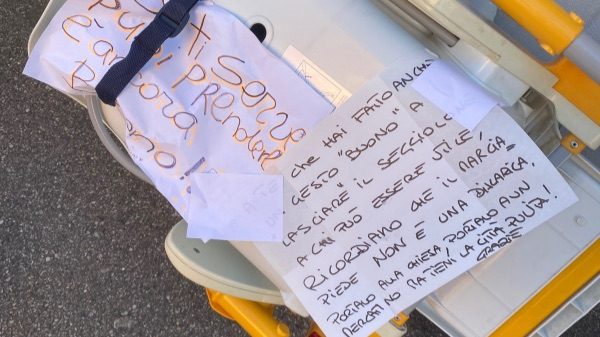 ti serve
puoi prendere
è ancora
CHE HAI FATTO ANCHE
GESTO "BUONO" A
LASCIARE IL SEGGIOLO
A CHI PUÒ ESSERE UTILE,
RICORDIAMO CHE IL MARCIA-
PIEDE NON È UNA DISCARICA.
PORTALO ALLA CHIESA, PORTALO A UN
MERCATINO MA TIENI LA CITTÀ PULITA!
GRAZIE